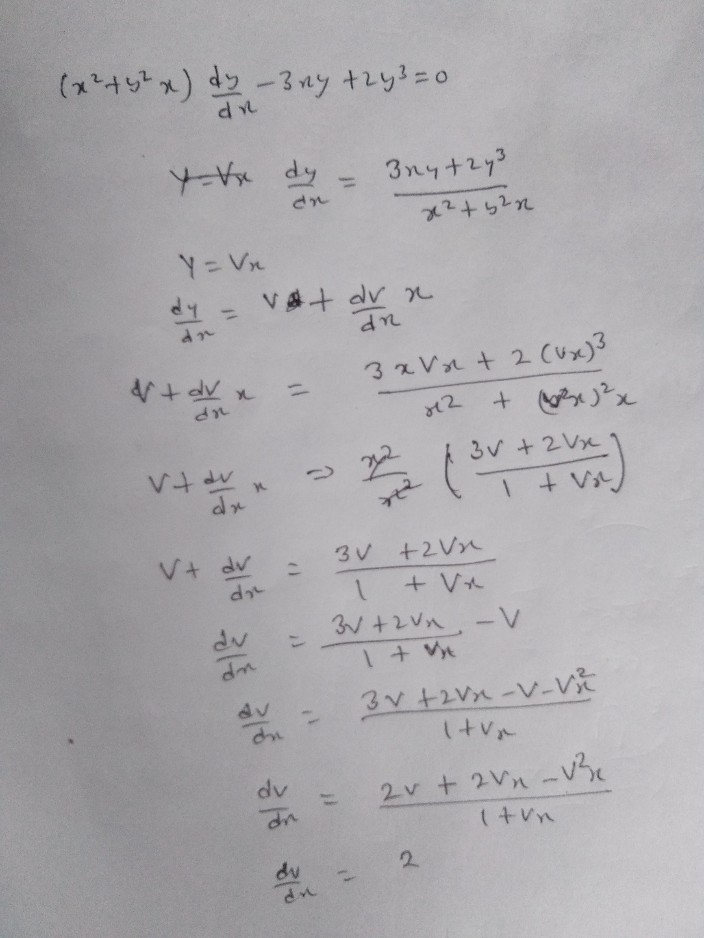 (x²+y²x) dy/dx - 3xy + 2y³ = 0
y = Vx dy/dx = (3xy + 2y³)/(x² + y²x)
y = Vx
dy/dx = V + dv/dx x
V + dv/dx x = (3xVx + 2(Vx)³)/(x² + (v²x)²x)
V + dv/dx x ⇒ x²/x² ((3V + 2Vx)/(1 + Vx))
V + dv/dx = (3V + 2Vx)/(1 + Vx)
dv/dx = (3V + 2Vx)/(1 + Vx) - V
dv/dx = (3V + 2Vx - V - Vx²)/(1 + Vx)
dv/dx = (2V + 2Vx - V²x)/(1 + Vx)
dv/dx = 2